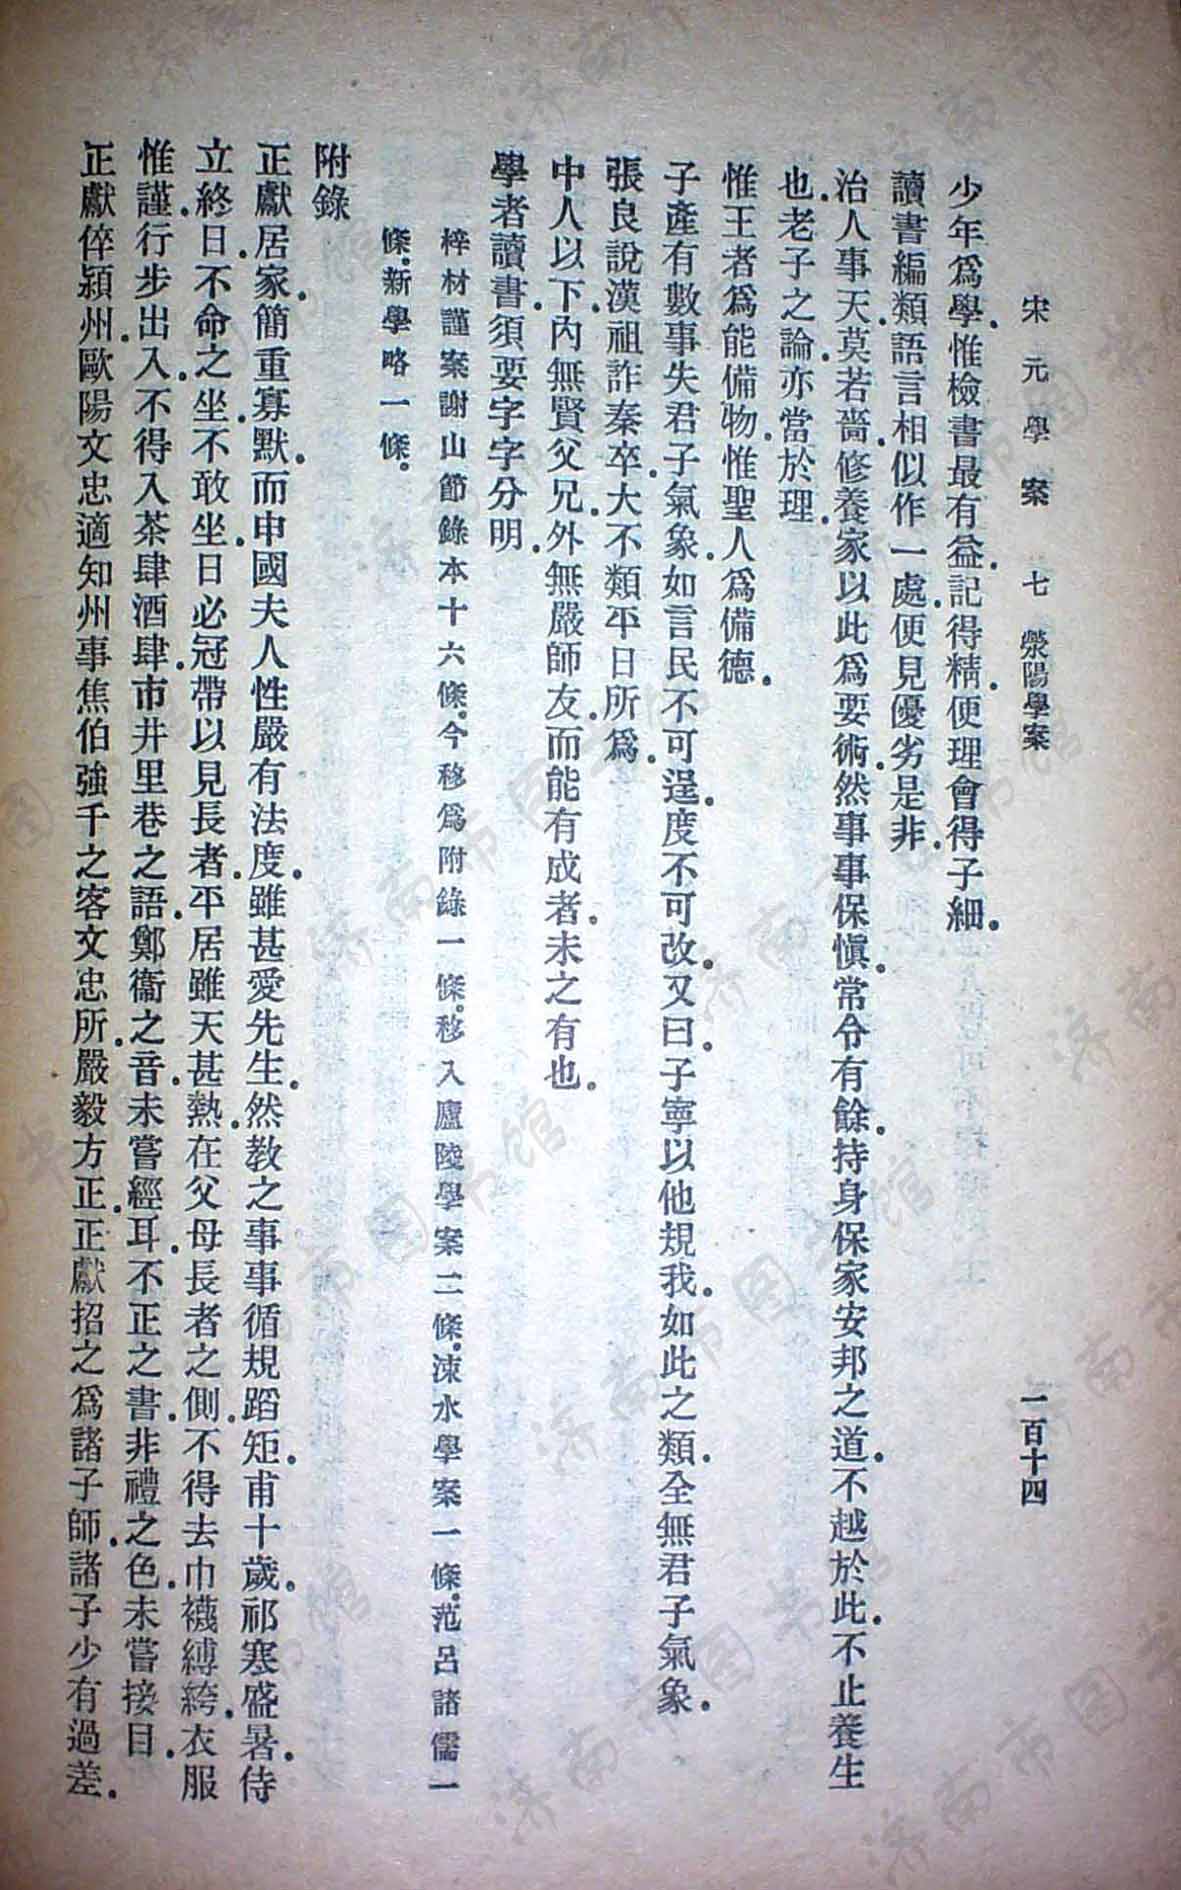 宋元學案 七 滎陽學案 一百十四
少年爲學.惟檢書最有益.記得精.便理會得子細.
讀書編類語言相似作一處.便見優劣是非.
治人事天.莫若嗇.修養家以此爲要術.然事事保愼.常令有餘.持身保家安邦之道.不越於此.不止養生
也.老子之論.亦當於理.
惟王者爲能備物.惟聖人爲備德.
子產有數事失君子氣象.如言民不可逞.度不可改.又曰.子寧以他規我.如此之類.全無君子氣象.
張良說漢祖詐秦卒.大不類平日所爲.
中人以下.內無賢父兄.外無嚴師友.而能有成者.未之有也.
學者讀書.須要字字分明.
梓材謹案謝山節錄本十六條.今移爲附錄一條.移入廬陵學案二條.涑水學案一條.范呂諸儒一
條.新學略一條.
附錄
正獻居家.簡重寡默.而申國夫人性嚴有法度.雖甚愛先生.然教之事事循規蹈矩.甫十歲.祁寒盛暑.侍
立終日.不命之坐.不敢坐.日必冠帶以見長者.平居雖天甚熱.在父母長者之側.不得去巾襪縛絝.衣服
惟謹.行步出入.不得入茶肆酒肆.市井里巷之語.鄭衞之音.未嘗經耳.不正之書.非禮之色.未嘗接目.
正獻倅潁州.歐陽文忠適知州事.焦伯強千之客文忠所.嚴毅方正.正獻招之爲諸子師.諸子少有過差.
濟南市图书馆